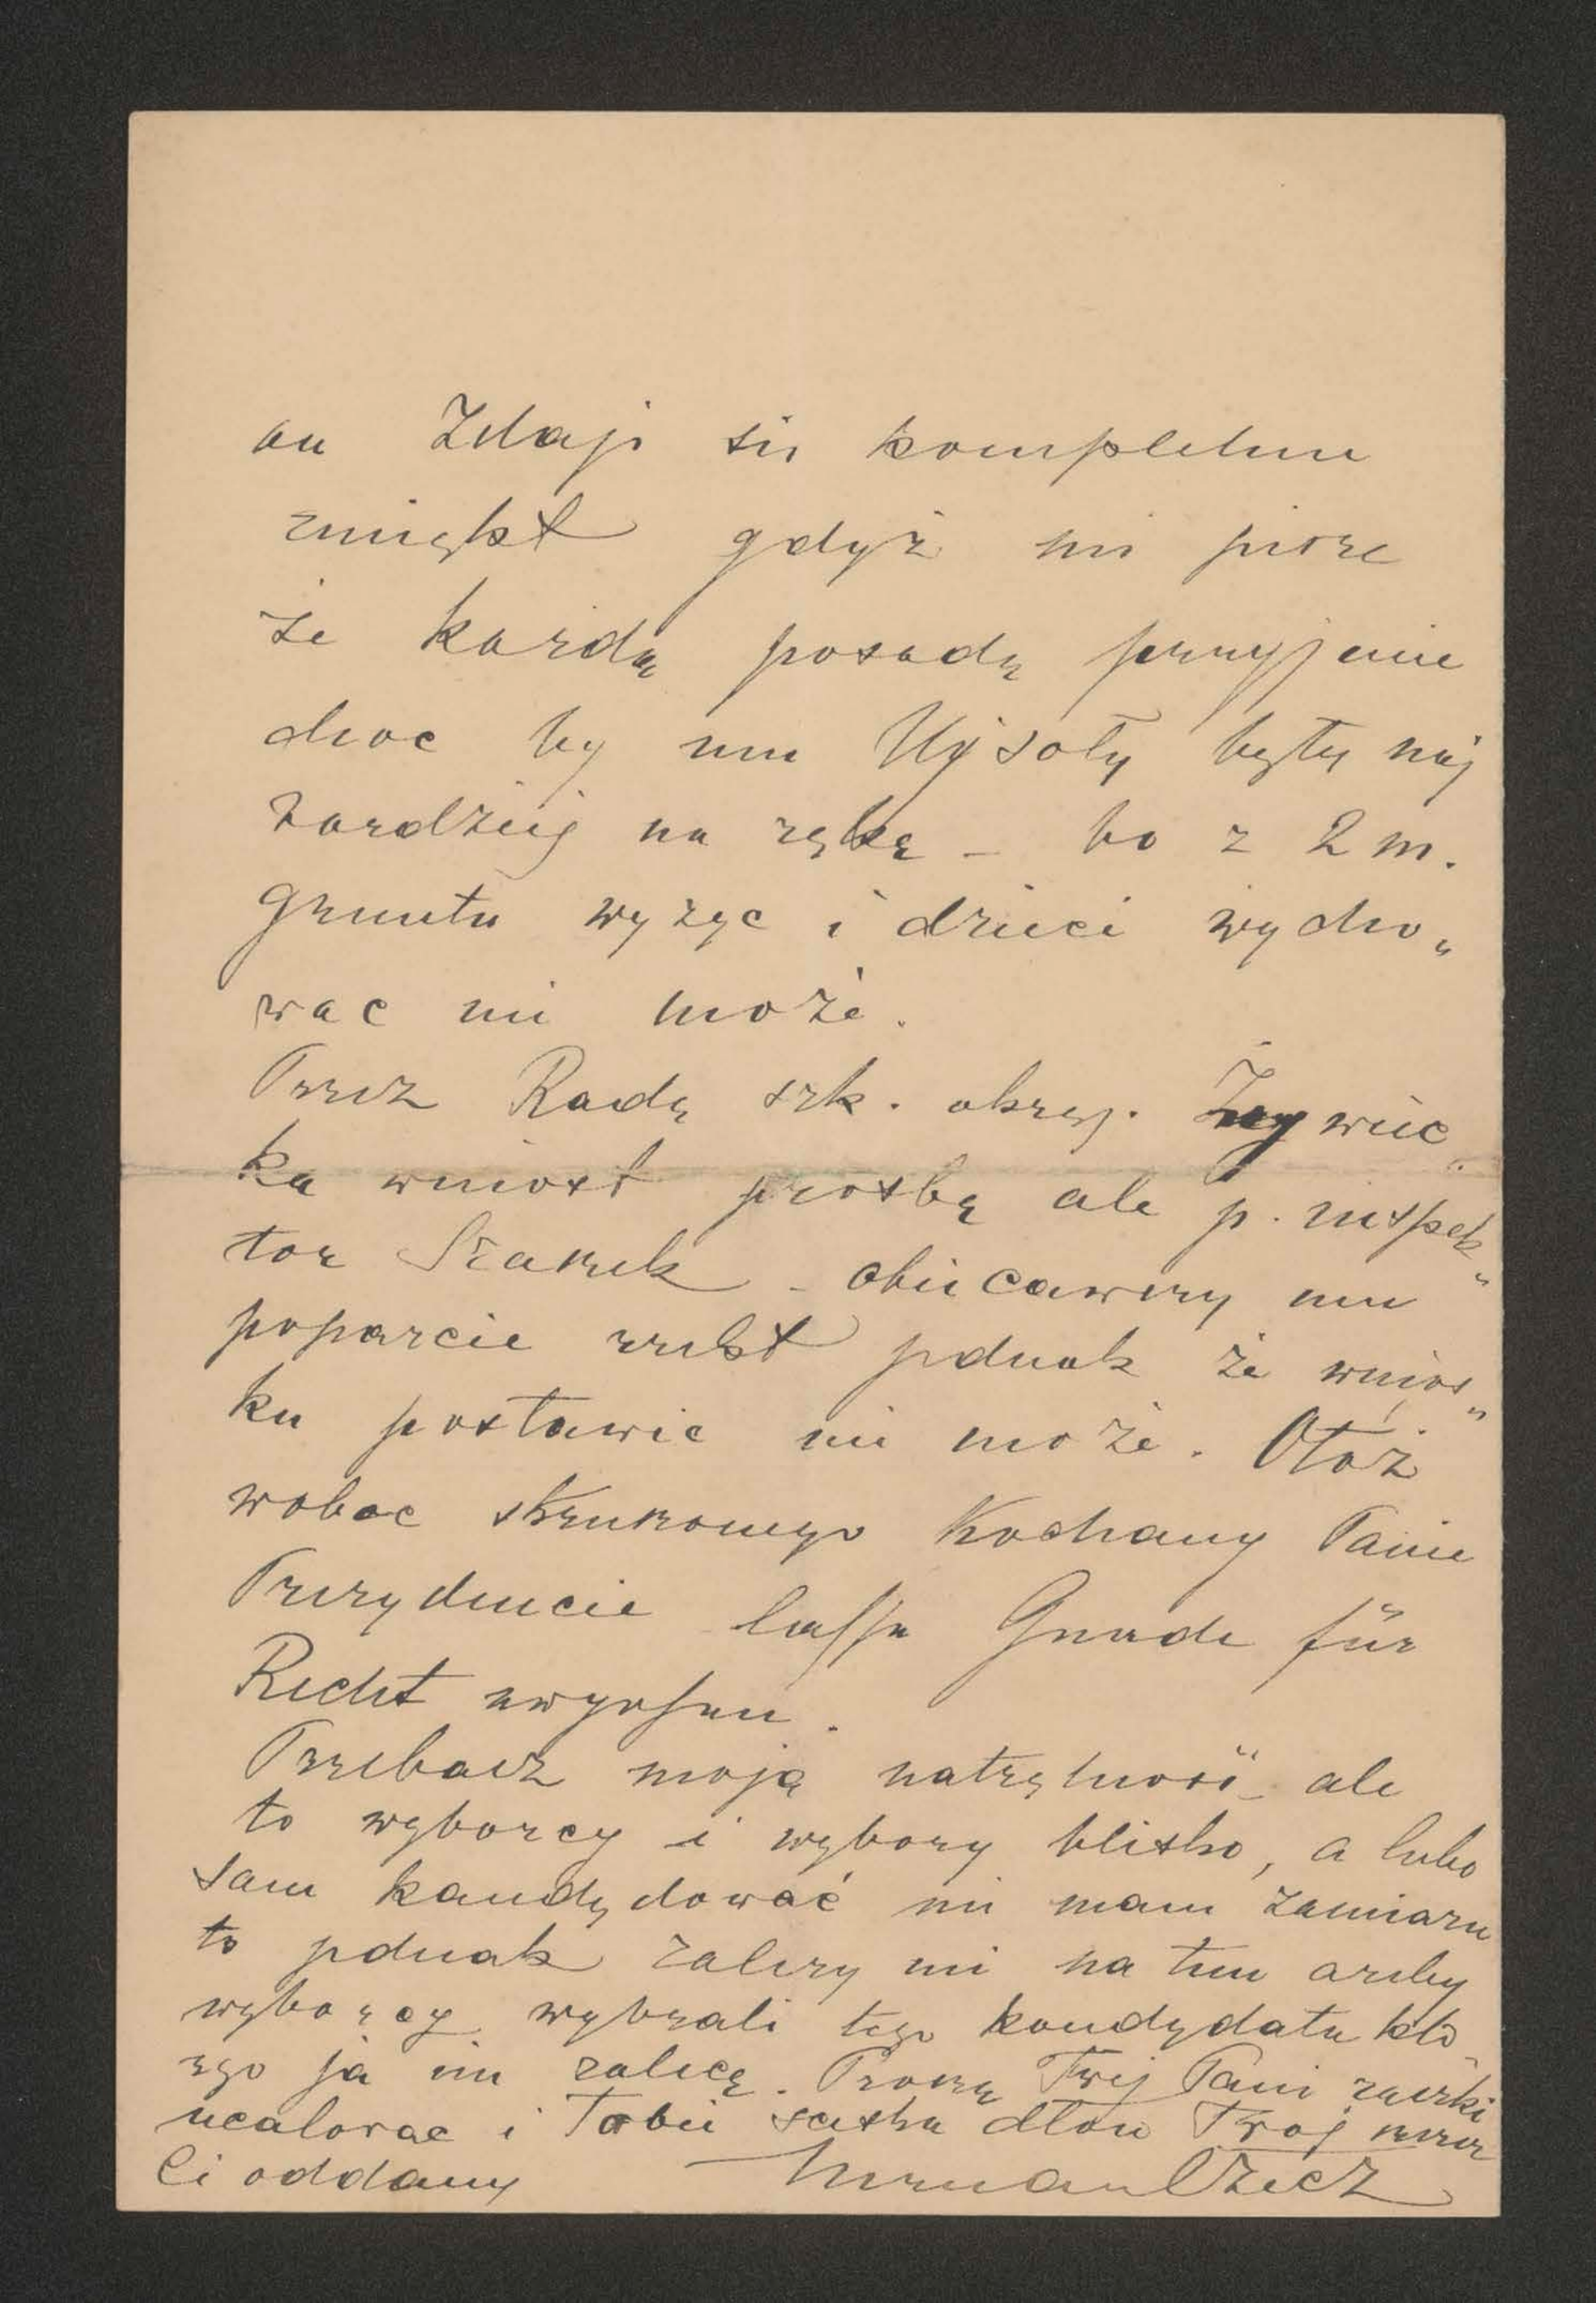 on Zdaje się kompletnie
zmiękł gdyż mi pisze
że każdą posadę przyjmie
choc by mu Ujsoły były naj
bardziej na rękę – bo z 2 m.
gruntu wyżyc i dzieci wycho„
wac nie może.
Przez Radę szk. okręg. Żywiec„
ka wniosł prosbę ale p. inspek„
tor Szarek – obiecawszy mu
poparcie rzekł jednak że wnios„
ku postawic nie może. Otoż
wobec skruszonego Kochany Panie
Prezydencie lasse Gnade für
Recht ergehen.
Przebacz moją natrętność – ale
to wyborcy i wybory blisko, a lubo
sam kandydować nie mam zamiaru
to jednak zależy mi na tem ażeby
wyborcy wybrali tego kandydata któ„
rego ja im zalecę. Proszę Twej Pani rączki
ucalować i Tobie sciska dłon Twoj szczerze
Ci oddany Herman Czecz